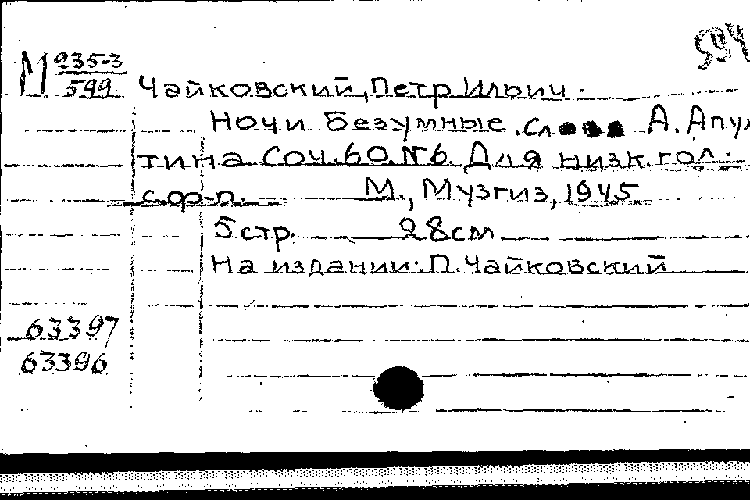 594
М 235-3
599
Чайковский, Петр Ильич.
Ночи безумные. Сл А. Апух
тина Соч. 60. №6. Для низк. гол.
с. ф-п. М., Музгиз, 1945
5 стр. 28 см
На издании: П. Чайковский
63397
63396